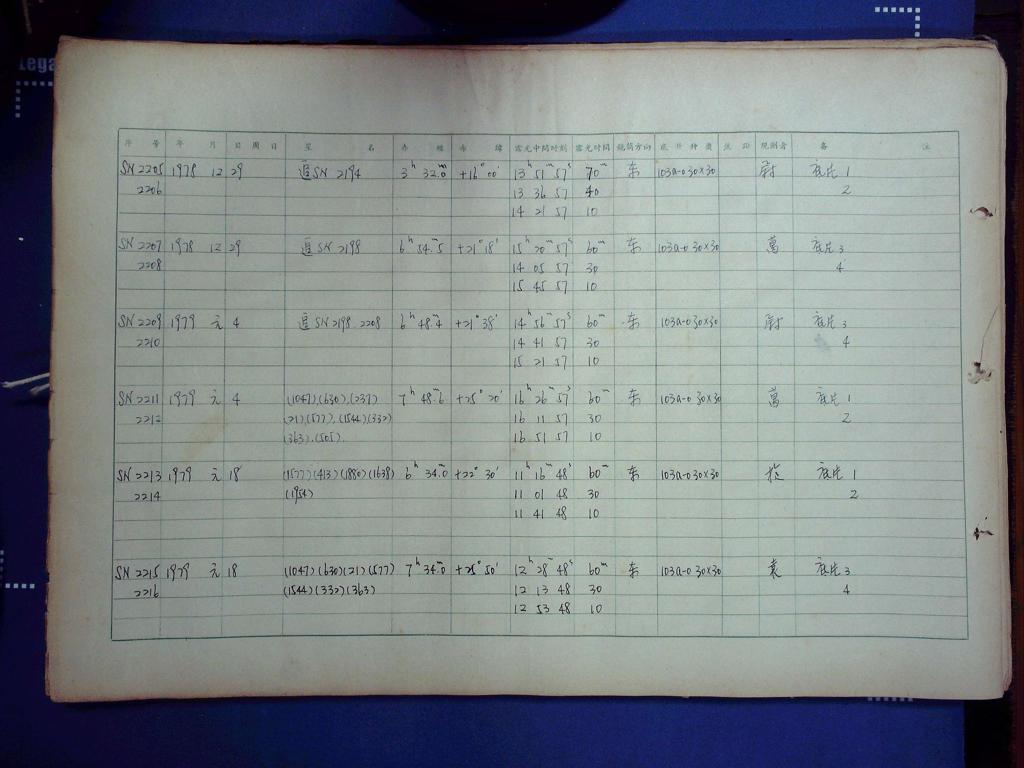 Lega
序 号 年 月 日 周 日 星 名 赤 经 赤 纬 露光中间时刻 露光时间 镜筒方向 底片种类 焦距 观测者 备 注
SN 2205 1978 12 29 追SN 2194 3h 32.0m +16° 00' 13h 51m 57s 70m 东 103a-0 30×30 尉 底片 1
2206 13 36 57 40 2
14 21 57 10
SN 2207 1978 12 29 追SN 2198 6h 54.5m +21° 18' 15h 20m 57s 60m 东 103a-0 30×30 萬 底片 3
2208 14 05 57 30 4
15 45 57 10
SN 2209 1979 元 4 追SN 2198. 2208 6h 48.4m +21° 38' 14h 56m 57s 60m 东 103a-0 30×30 尉 底片 3
2210 14 41 57 30 4
15 21 57 10
SN 2211 1979 元 4 (1047)(630).(237) 7h 48.6m +25° 20' 16h 26m 57s 60m 东 103a-0 30×30 萬 底片 1
2212 (21)(577).(1544)(332) 16 11 57 30 2
(363).(505). 16 51 57 10
SN 2213 1979 元 18 (1577)(413)(1880)(1638) 6h 34.0m +22° 30' 11h 16m 48s 60m 东 103a-0 30×30 底片 1
2214 (1954) 11 01 48 30 2
11 41 48 10
SN 2215 1979 元 18 (1047)(630)(21)(577) 7h 34.0m +25° 50' 12h 28m 48s 60m 东 103a-0 30×30 袁 底片 3
2216 (1544)(332)(363) 12 13 48 30 4
12 53 48 10